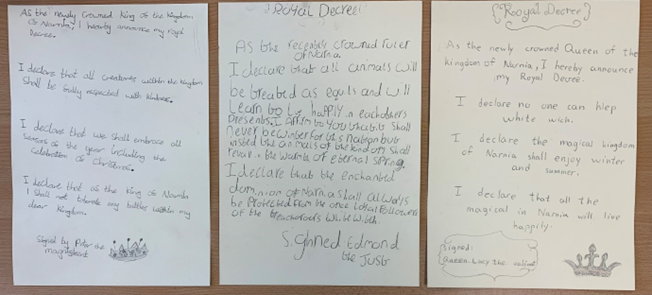 As the newly Crowned King of the Kingdom
Of Narnia, I hearby announce my royal
Decree.
I declare that all creatures within the Kingdom
Shall be fully respected with kindness.
I declare that we shall embrace all
Seasons of the year including the
Celebration of Christmas.
I declare that as the King of Narnia
I shall not tolerate any battles within my
dear Kingdom.
Signed by Peter the
magnificent
Royal Decree!
As the recently crowned ruler
of Narnia.
I declare that all animals will
be treated as equals and will
learn to be happily in eachothers
presents. I Affirm to you that it Shall
never be winter for this nation but
insted the animals of the kindom Shall
in the warmth of eternal spring
I declare that the enchanted
dominion of Narnia shall always
be Protected from the once Loyal followers
Of the treacherous White Witch.
Signed Edmond
the Just
Rooyal Decree
As the newly crowned Queen of the
kingdom of Narnia, I hereby announce
my Royal Decree.
I declare no one can hlep
white wich.
I declare the magical kingdom
of Narnia shall enjoy winter
and summer.
I declare that all the
magical in Narnia will live
happily.
Signed:
Queen Lucy the